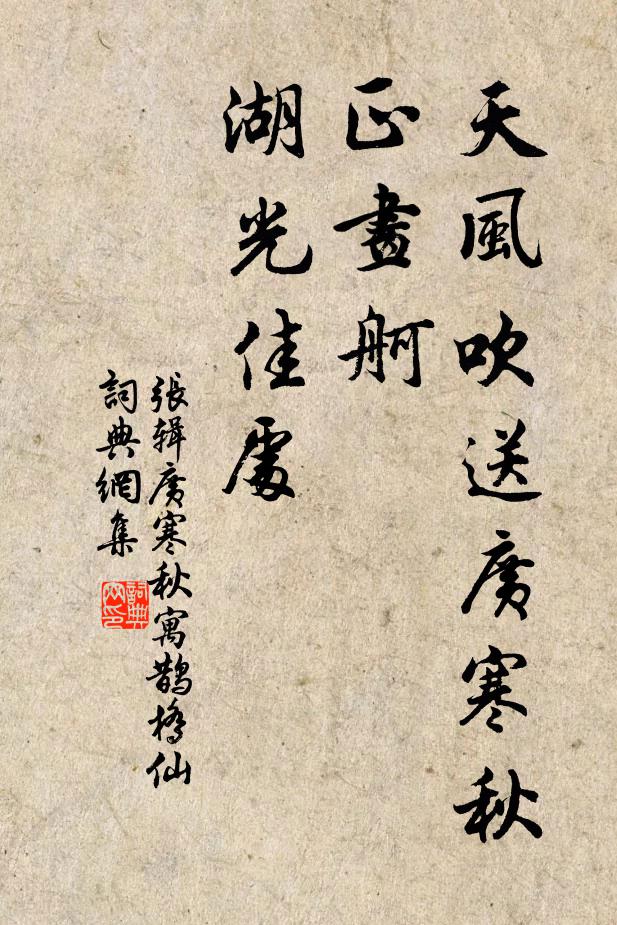 天風吹送廣寒秋
正畫舸
湖光佳處
張辑廣寒秋寓鵲橋仙
詞典網集
詞典
网印